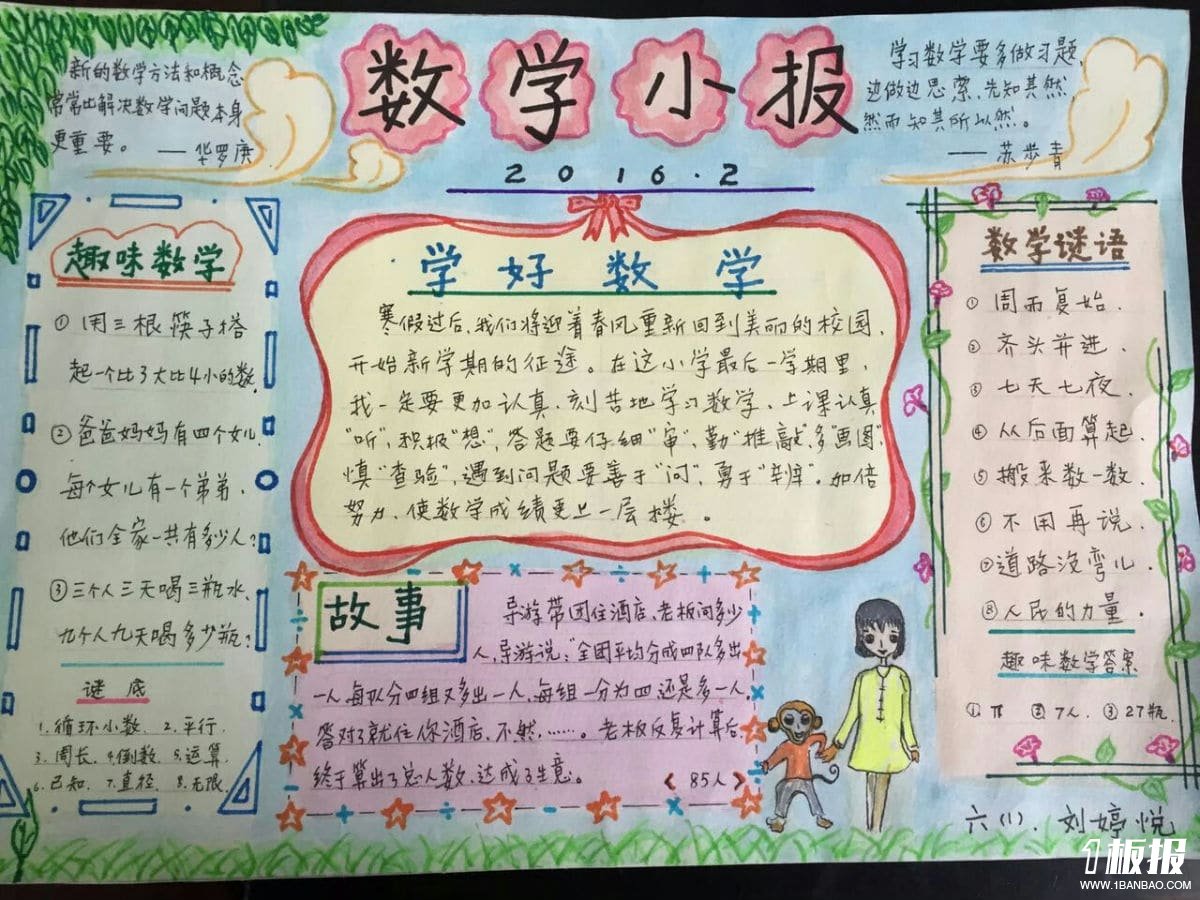 数学小报
2016.2
新的数学方法和概念
常常比解决数学问题本身
更重要。 ——华罗庚
学习数学要多做习题,
边做边思索,先知其然,
然而知其所以然。
——苏步青
趣味数学
①用三根筷子搭
起一个比3大比4小的数.
②爸爸妈妈有四个女儿.
每个女儿有一个弟弟.
他们全家一共有多少人?
③三个人三天喝三瓶水,
九个人九天喝多少瓶?
谜底
1.循环小数. 2.平行.
3.周长. 4.倒数. 5.运算.
6.已知. 7.直径. 8.无限.
学好数学
寒假过后,我们将迎着春风重新回到美丽的校园,
开始新学期的征途。在这小学最后一学期里,
我一定要更加认真、刻苦地学习数学,上课认真
"听",积极"想",答题要仔细"审",勤"推敲",多"画图"
慎"查验",遇到问题要善于"问",勇于"辩"。加倍
努力,使数学成绩更上一层楼。
故事
导游带团住酒店,老板问多少
人,导游说:"全团平均分成四队多出
一人,每队分四组又多出一人,每组一分为四还是多一人.
答对了就住你酒店,不然,……。老板反复计算后,
终于算出了总人数,达成了生意。
《85人》
数学谜语
①周而复始.
②齐头并进.
③七天七夜.
④从后面算起.
⑤搬来数一数.
⑥不用再说.
⑦道路没弯儿.
⑧人民的力量.
趣味数学答案
①π ②7人. ③27瓶.
六(1). 刘婷悦
1板报
WWW.1BANBAO.COM